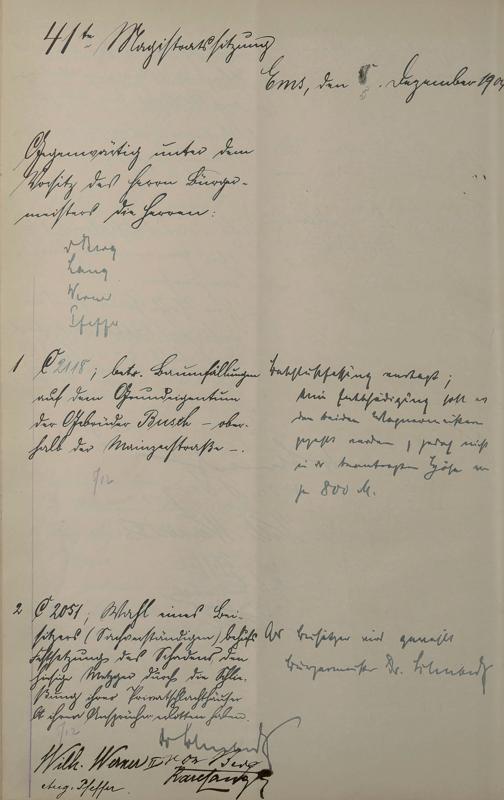 41te Magistratssitzung
Ems, den 8. Dezember 190
Gegenwärtig unter dem
Vorsitz des Herrn Bürger-
meisters die Herren:
v Berg
Lang
Werner
Pfeffer
1 C 2118; betr. Baumfällungen
auf dem Grundeigentum
der Gebrüder Busch – ober-
halb der Mainzerstraße –.
Beschlußfassung vertagt;
eine Entschädigung soll es
den beiden
gezahlt werden, jedoch nicht
in der beantragten Höhe von
je 800 M.
9/12
2 C 2051; Wahl eines Bei-
sitzers (Sachverständigen) behufs
Festsetzung des Schadens, den
hiesige Metzger durch die Schlie-
ßung ihrer Privatschlachthäuser
ihrer Ansprüche erlitten haben.
Als Beisitzer wird gewählt
Bürgermeister Dr.
9/12
Wilh. Werner II von Berg
Aug. Pfeffer. Karl Lang